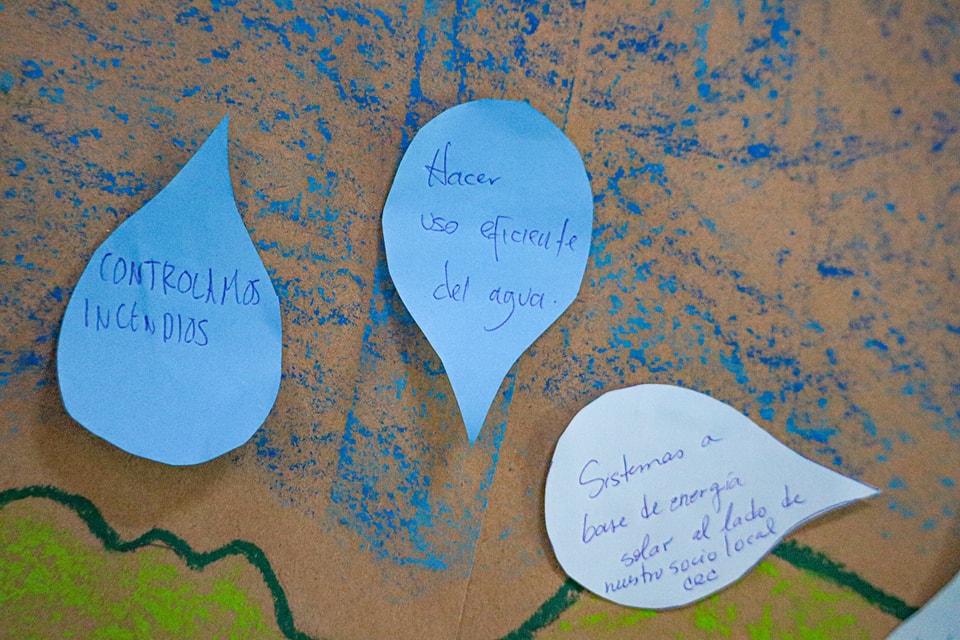 CONTROLAMOS
INCENDIOS
Hacer
uso eficiente
del agua.
Sistemas a
base de energía
solar al lado de
nuestro socio local
CEC